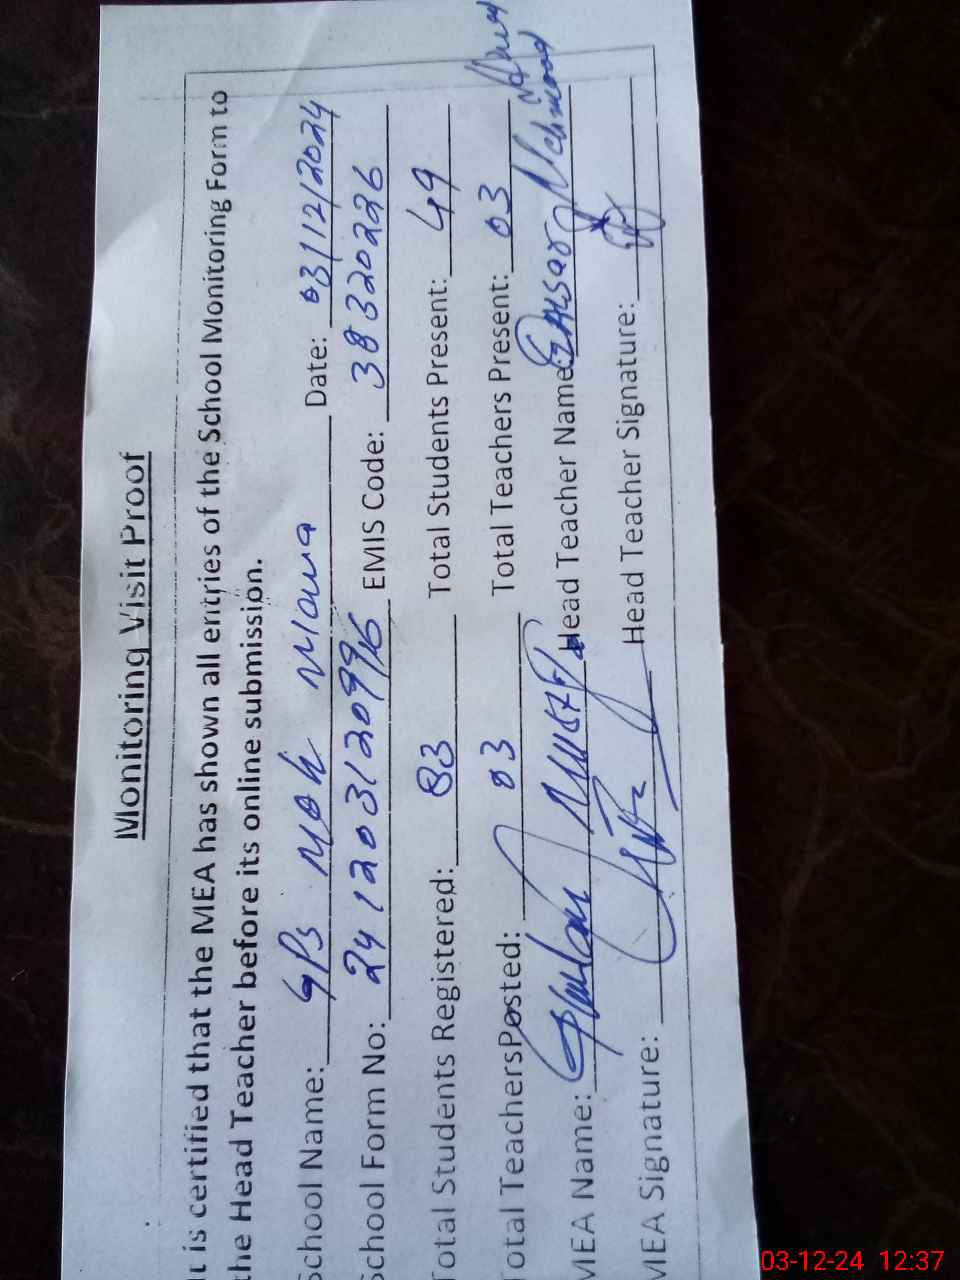 Monitoring Visit Proof
It is certified that the MEA has shown all entries of the School Monitoring Form to
the Head Teacher before its online submission.
School Name: GPS Date: 03/12/2024
School Form No: 2412031209916 EMIS Code: 38320226
Total Students Registered: 83 Total Students Present: 49
Total TeachersPosted: 03 Total Teachers Present: 03
MEA Name: Head Teacher Name:
MEA Signature: Head Teacher Signature:
03-12-24 12:37